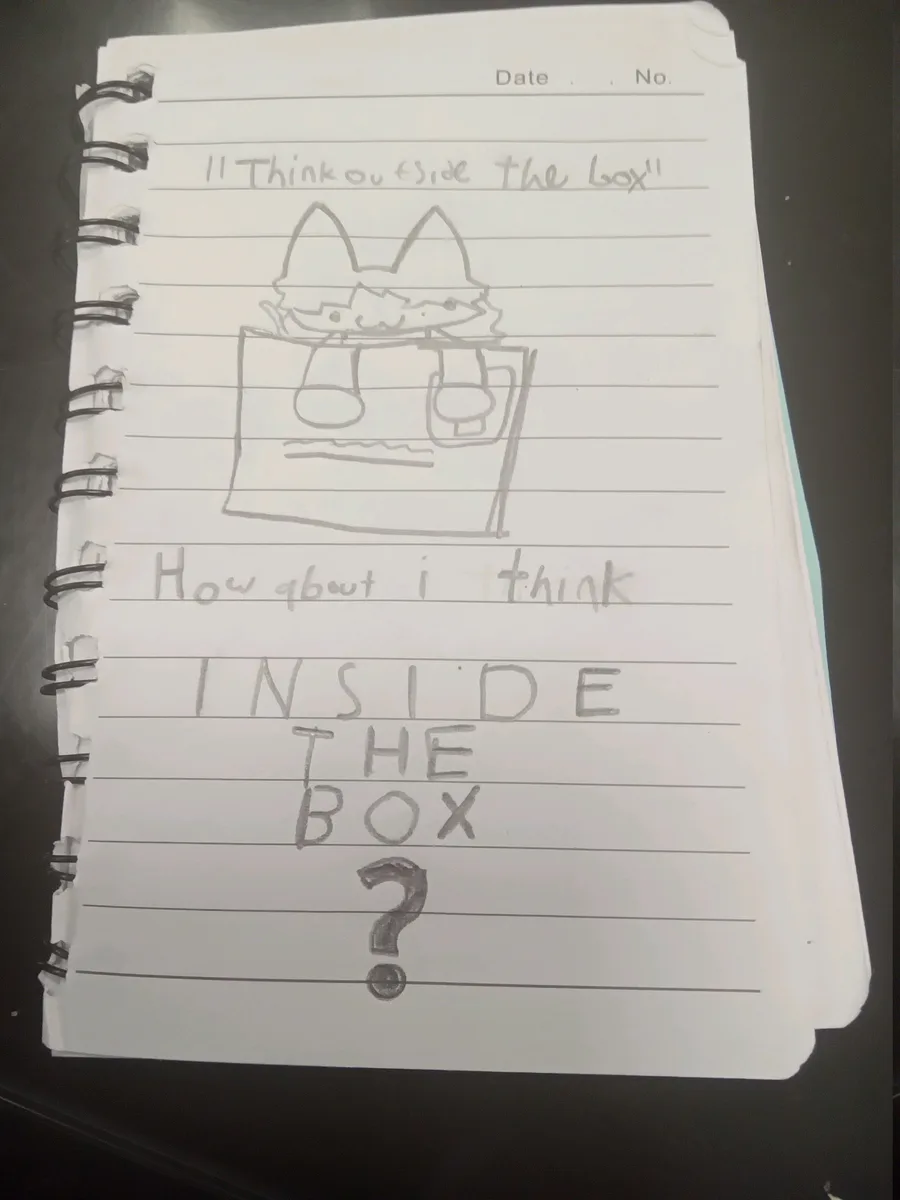 Date . . No.
"Think outside the box"
How about i think
INSIDE
THE
BOX
?